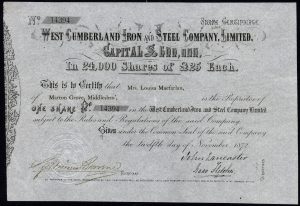 No. 14394 Share Certificate
West Cumberland Iron and Steel Company, Limited.
Capital £600,000,
In 24,000 Shares of £25 Each.
This is to Certify that Mrs. Louisa Macfarlan,
of Marton Grove, Middlesbro', is the Proprietor of
One Share No. 14394 in the West Cumberland Iron and Steel Company Limited
subject to the Rules and Regulations of the said Company
Given under the Common Seal of the said Company
the twelfth day of November, 1872
John Lancaster
Isaac Fletcher